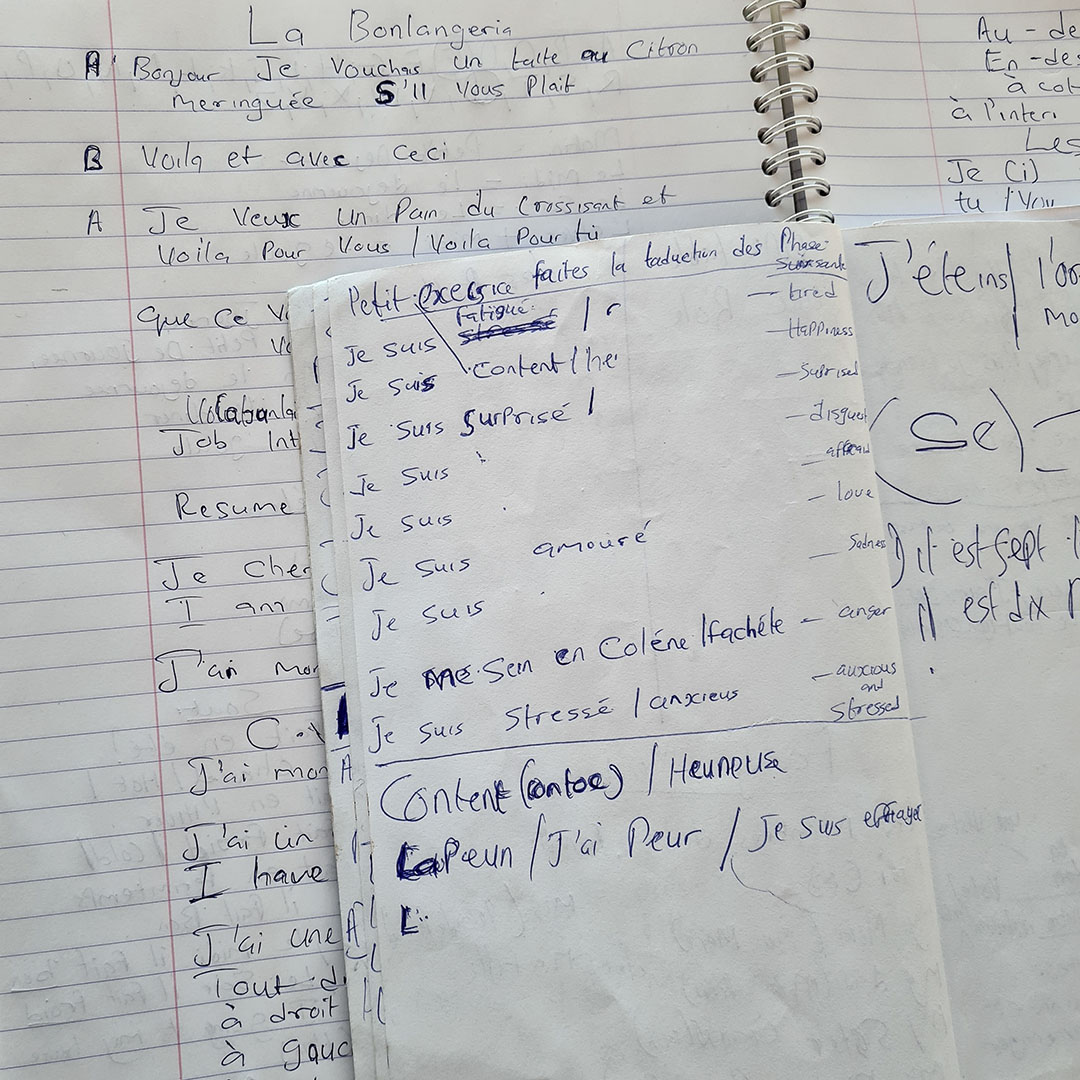 La Bonlangeria
A Bonjour Je Vouchais un talte au Citron
meringuée S'Il Vous Plait
B Voila et avec Ceci
A Je Veux un Pain du Croissisant et
Voila Pour Vous / Voila Pour tu
que Ce
Job Int
Resume
Je Cher
I am
J'ai mon
J'ai mon
J'ai un
I have
J'ai une
Tout d
à droit
à gauc
Petit execsrice faites la taduction des Phase
Suixsante
Je Suis fatigué / r — tired
Je Suis Content / he — HaPPiness
Je Suis Surprisé / — Suprised
Je Suis — disgust
Je Suis — affraid
Je Suis amouré — love
Je Suis — Sadness
Je me Sein en Colére / fachéte — anger
Je Suis Stressé / anxieus — auxious
and
Stressed
Content (ontoe) / Heuneuse
La Pœun / J'ai Peur / Je suis effrayé
L
Au - de
En - des
à cot
à l'interi
Les
Je (i)
tu / Vou
J'éteins / l'or
mo
(Se) —
il est sept
il est dix